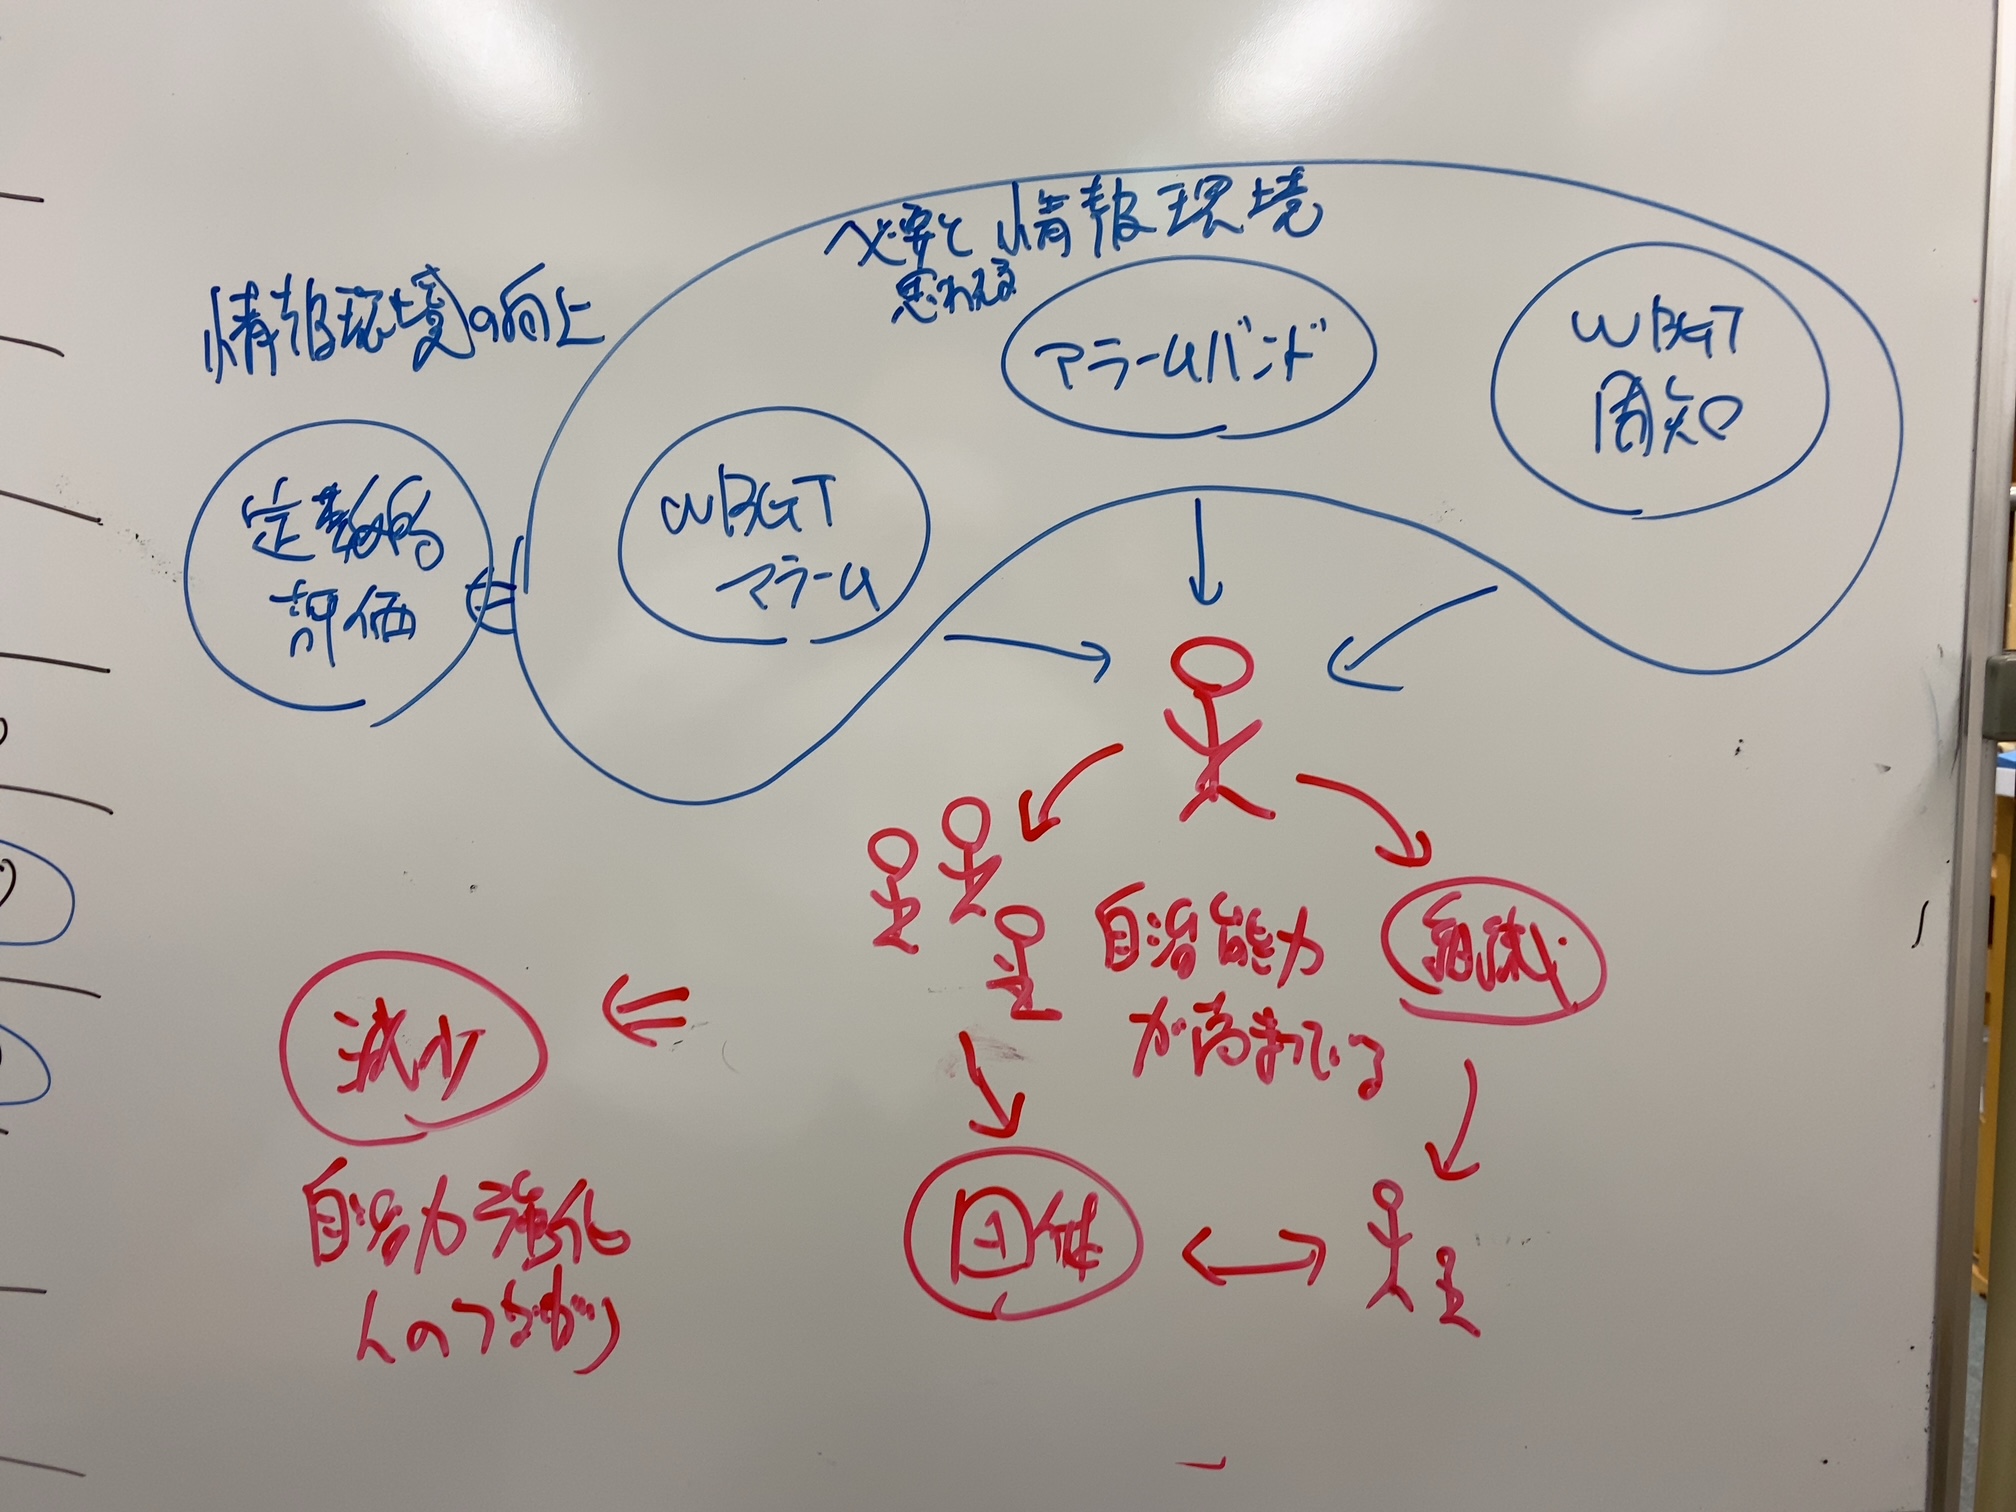 必要と 情報環境
思われる
情報環境の向上
アラームバンド
WBGT
周知
WBGT
アラーム
定教的
評価
自治能力
が高まっている
減少
自治力強化
人のつながり